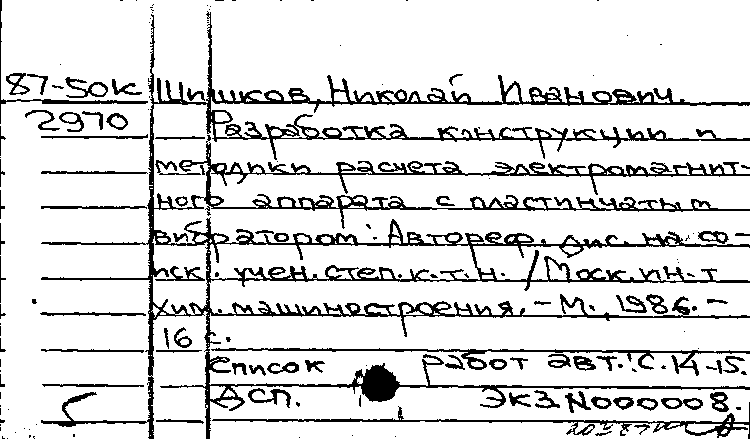 87-50к Шишков, Николай Иванович.
2970 Разработка конструкции и
методики расчета электромагнит-
ного аппарата с пластинчатым
вибратором: Автореф. дис. на со-
иск. учен. степ. к.т.н. / Моск. ин-т
хим. машиностроения. - М., 1986. -
16 с.
Список работ авт.: С. 14-15.
5 ДСП. Экз. N000008.